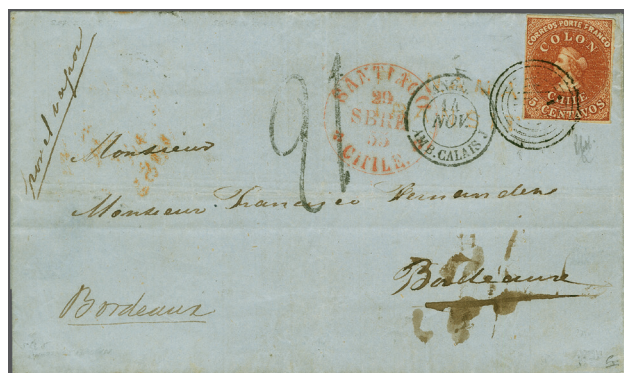 por el vapor
CORREOS PORTE FRANCO
COLON
CHILE
5 CENTAVOS
SANTIAGO
29
SBRE
CHILE.
ANGL.
14
NOV
AMB. CALAIS
21
Monsieur
Monsieur Francisco Fernandez
Bordeaux
Bordeaux